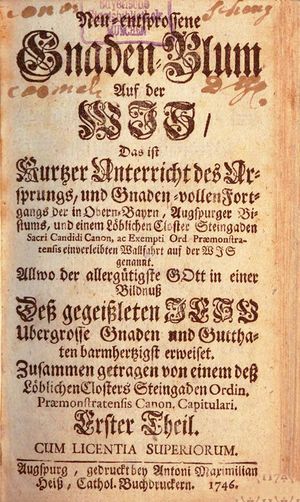 Neu-entsprossene
Gnaden-Blum
Auf der
WJS/
Das ist
Kurtzer Unterricht des Ur-
sprungs, und Gnaden-vollen Fort-
gangs der in Obern-Bayrn, Augspurger Bi-
stums, und einem Löblichen Closter Steingaden
Sacri Candidi Canon, ac Exempti Ord. Præmonstra-
tensis einverleibten Wallfahrt auf der WJS
genannt.
Allwo der allergütigste GOtt in einer
Bildnuß
Deß gegeißleten JESU
Ubergrosse Gnaden und Guttha-
ten barmhertzigst erweiset.
Zusammen getragen von einem deß
Löblichen Closters Steingaden Ordin.
Præmonstratensis Canon. Capitulari.
Erster Theil.
CUM LICENTIA SUPERIORUM.
Augspurg, gedruckt bey Antoni Maximilian
Heiß, Cathol. Buchdruckern. 1746.